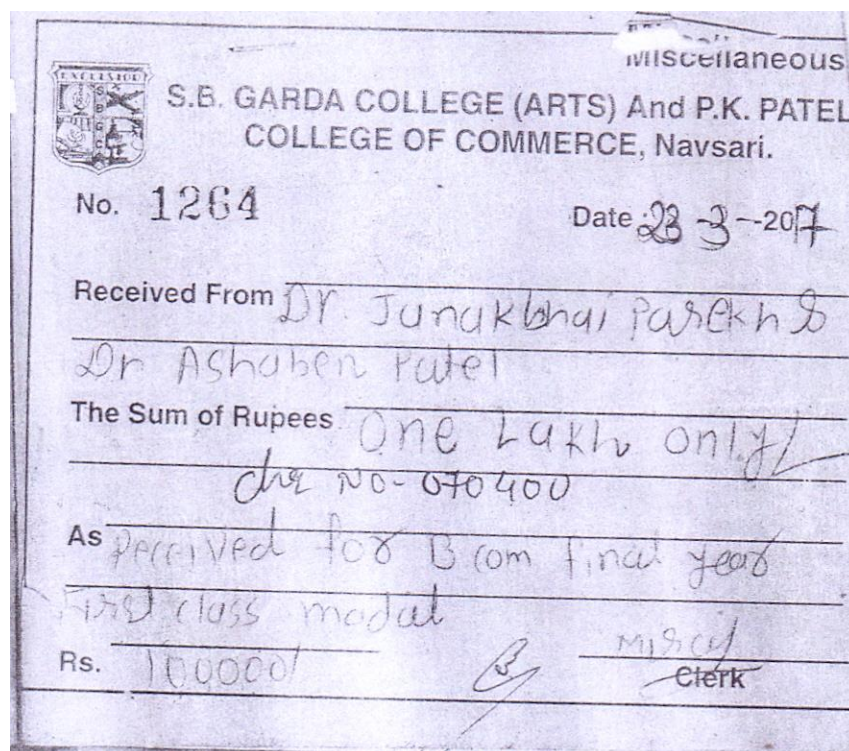 Miscellaneous
EXCELSIOR
S B G C
S.B. GARDA COLLEGE (ARTS) And P.K. PATEL
COLLEGE OF COMMERCE, Navsari.
No. 1264
Date 23-3-2017
Received From Dr. Janakbhai Parekh &
Dr Ashaben Patel
The Sum of Rupees One Lakh only/
che NO-070400
As Received for B com final year
First class medal
Rs. 100000/
Clerk